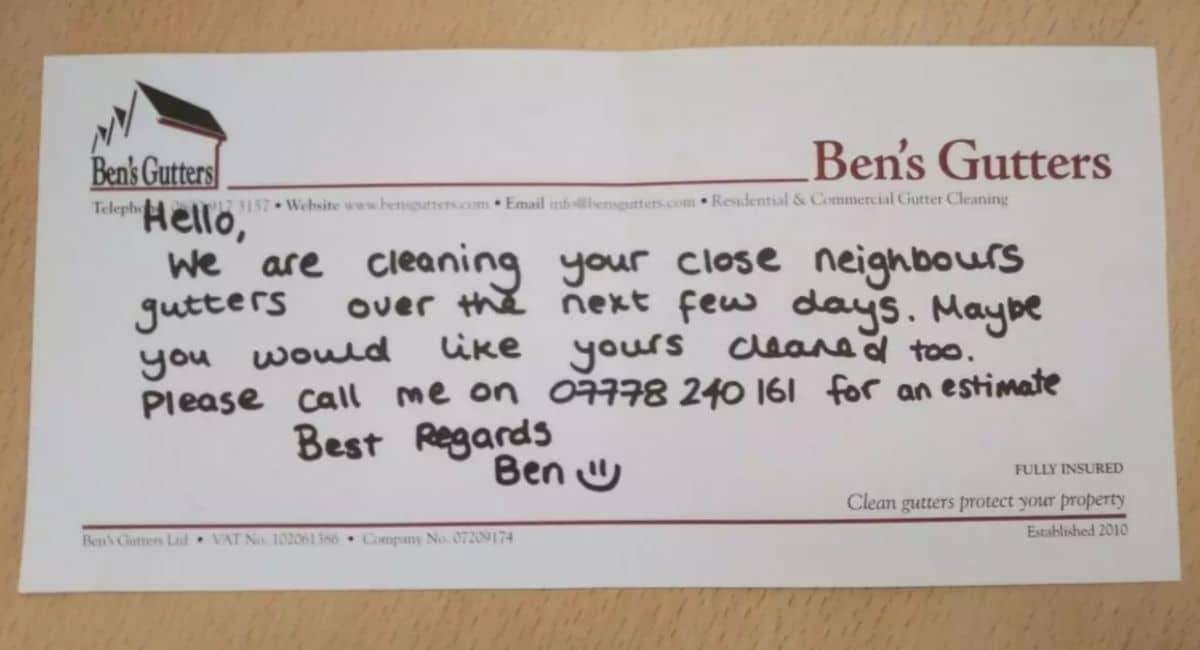 Ben's Gutters
Ben's Gutters
3157 • Website www.bensgutters.com • Email info@bensgutters.com • Residential & Commercial Gutter Cleaning
Hello,
We are cleaning your close neighbours
gutters over the next few days. Maybe
you would like yours cleaned too.
Please call me on 07778 240 161 for an estimate
Best Regards
Ben
FULLY INSURED
Clean gutters protect your property
Ben's Gutters Ltd • VAT No. 102061386 • Company No. 07209174
Established 2010